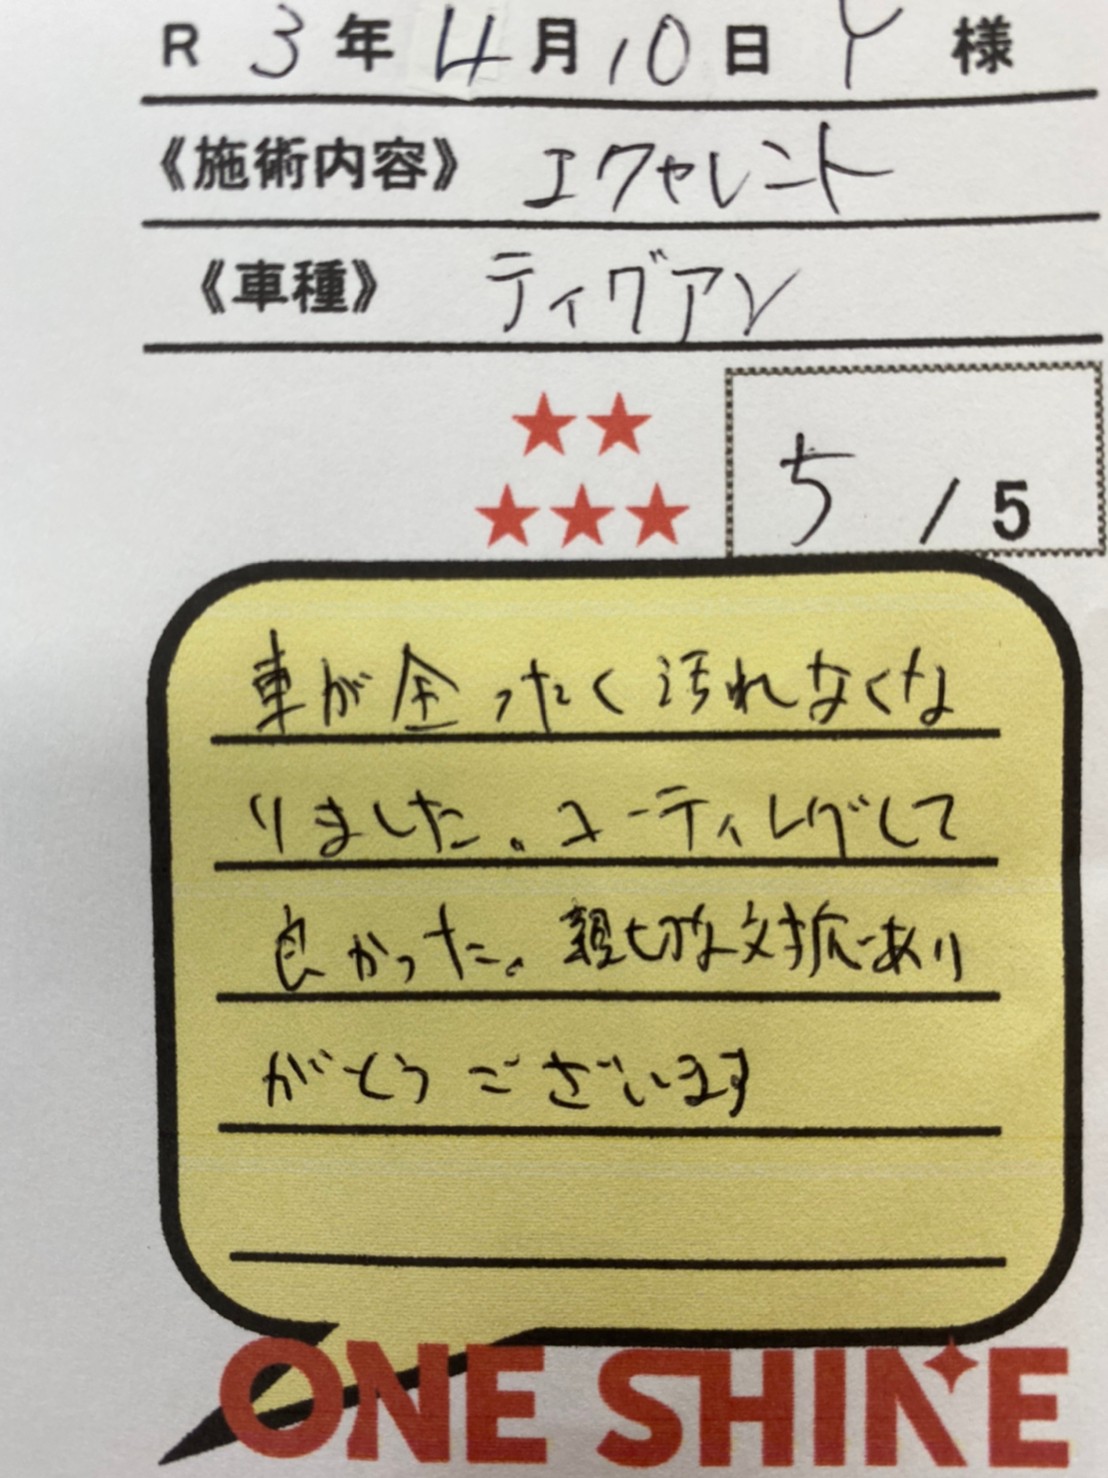 R 3年 4月 10日 Y 様
《施術内容》 エクャレント
《車種》 ティグアン
★★
★★★
5 / 5
車が全ったく汚れなくな
りました。コーティングして
良かった。親切な対応あり
がとうございます
ONE SHINE